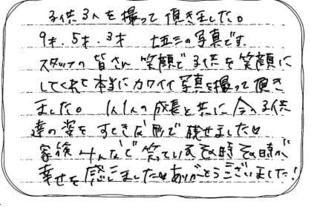 子供3人を撮って頂きました。
9才、5才、3才 七五三の写真です。
スタッフの皆さん 笑顔で子供を笑顔に
してくれて本当にカワイイ写真を撮って頂き
ました。1人1人の成長と共に今の子供
達の姿をすてきな形で残せました
家族みんなで笑っているその時その時が
幸せを感じました ありがとうございました!